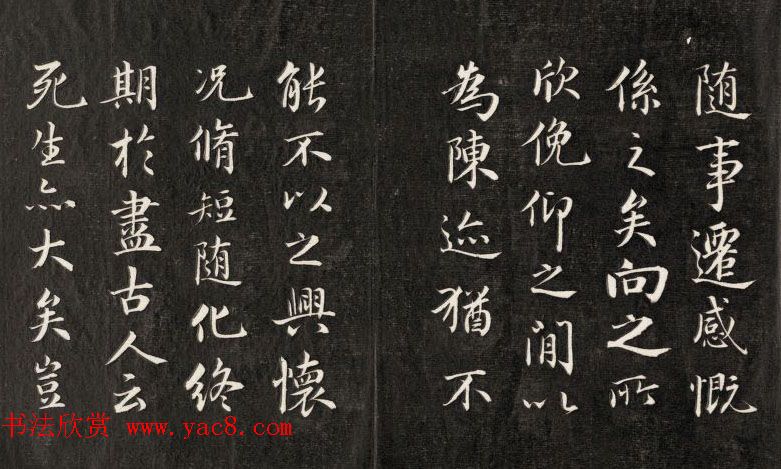 随事遷感慨
係之矣向之所
欣俛仰之閒以
為陳迹猶不
能不以之興懷
况脩短随化終
期於盡古人云
死生亦大矣豈
书法欣赏 www.yac8.com